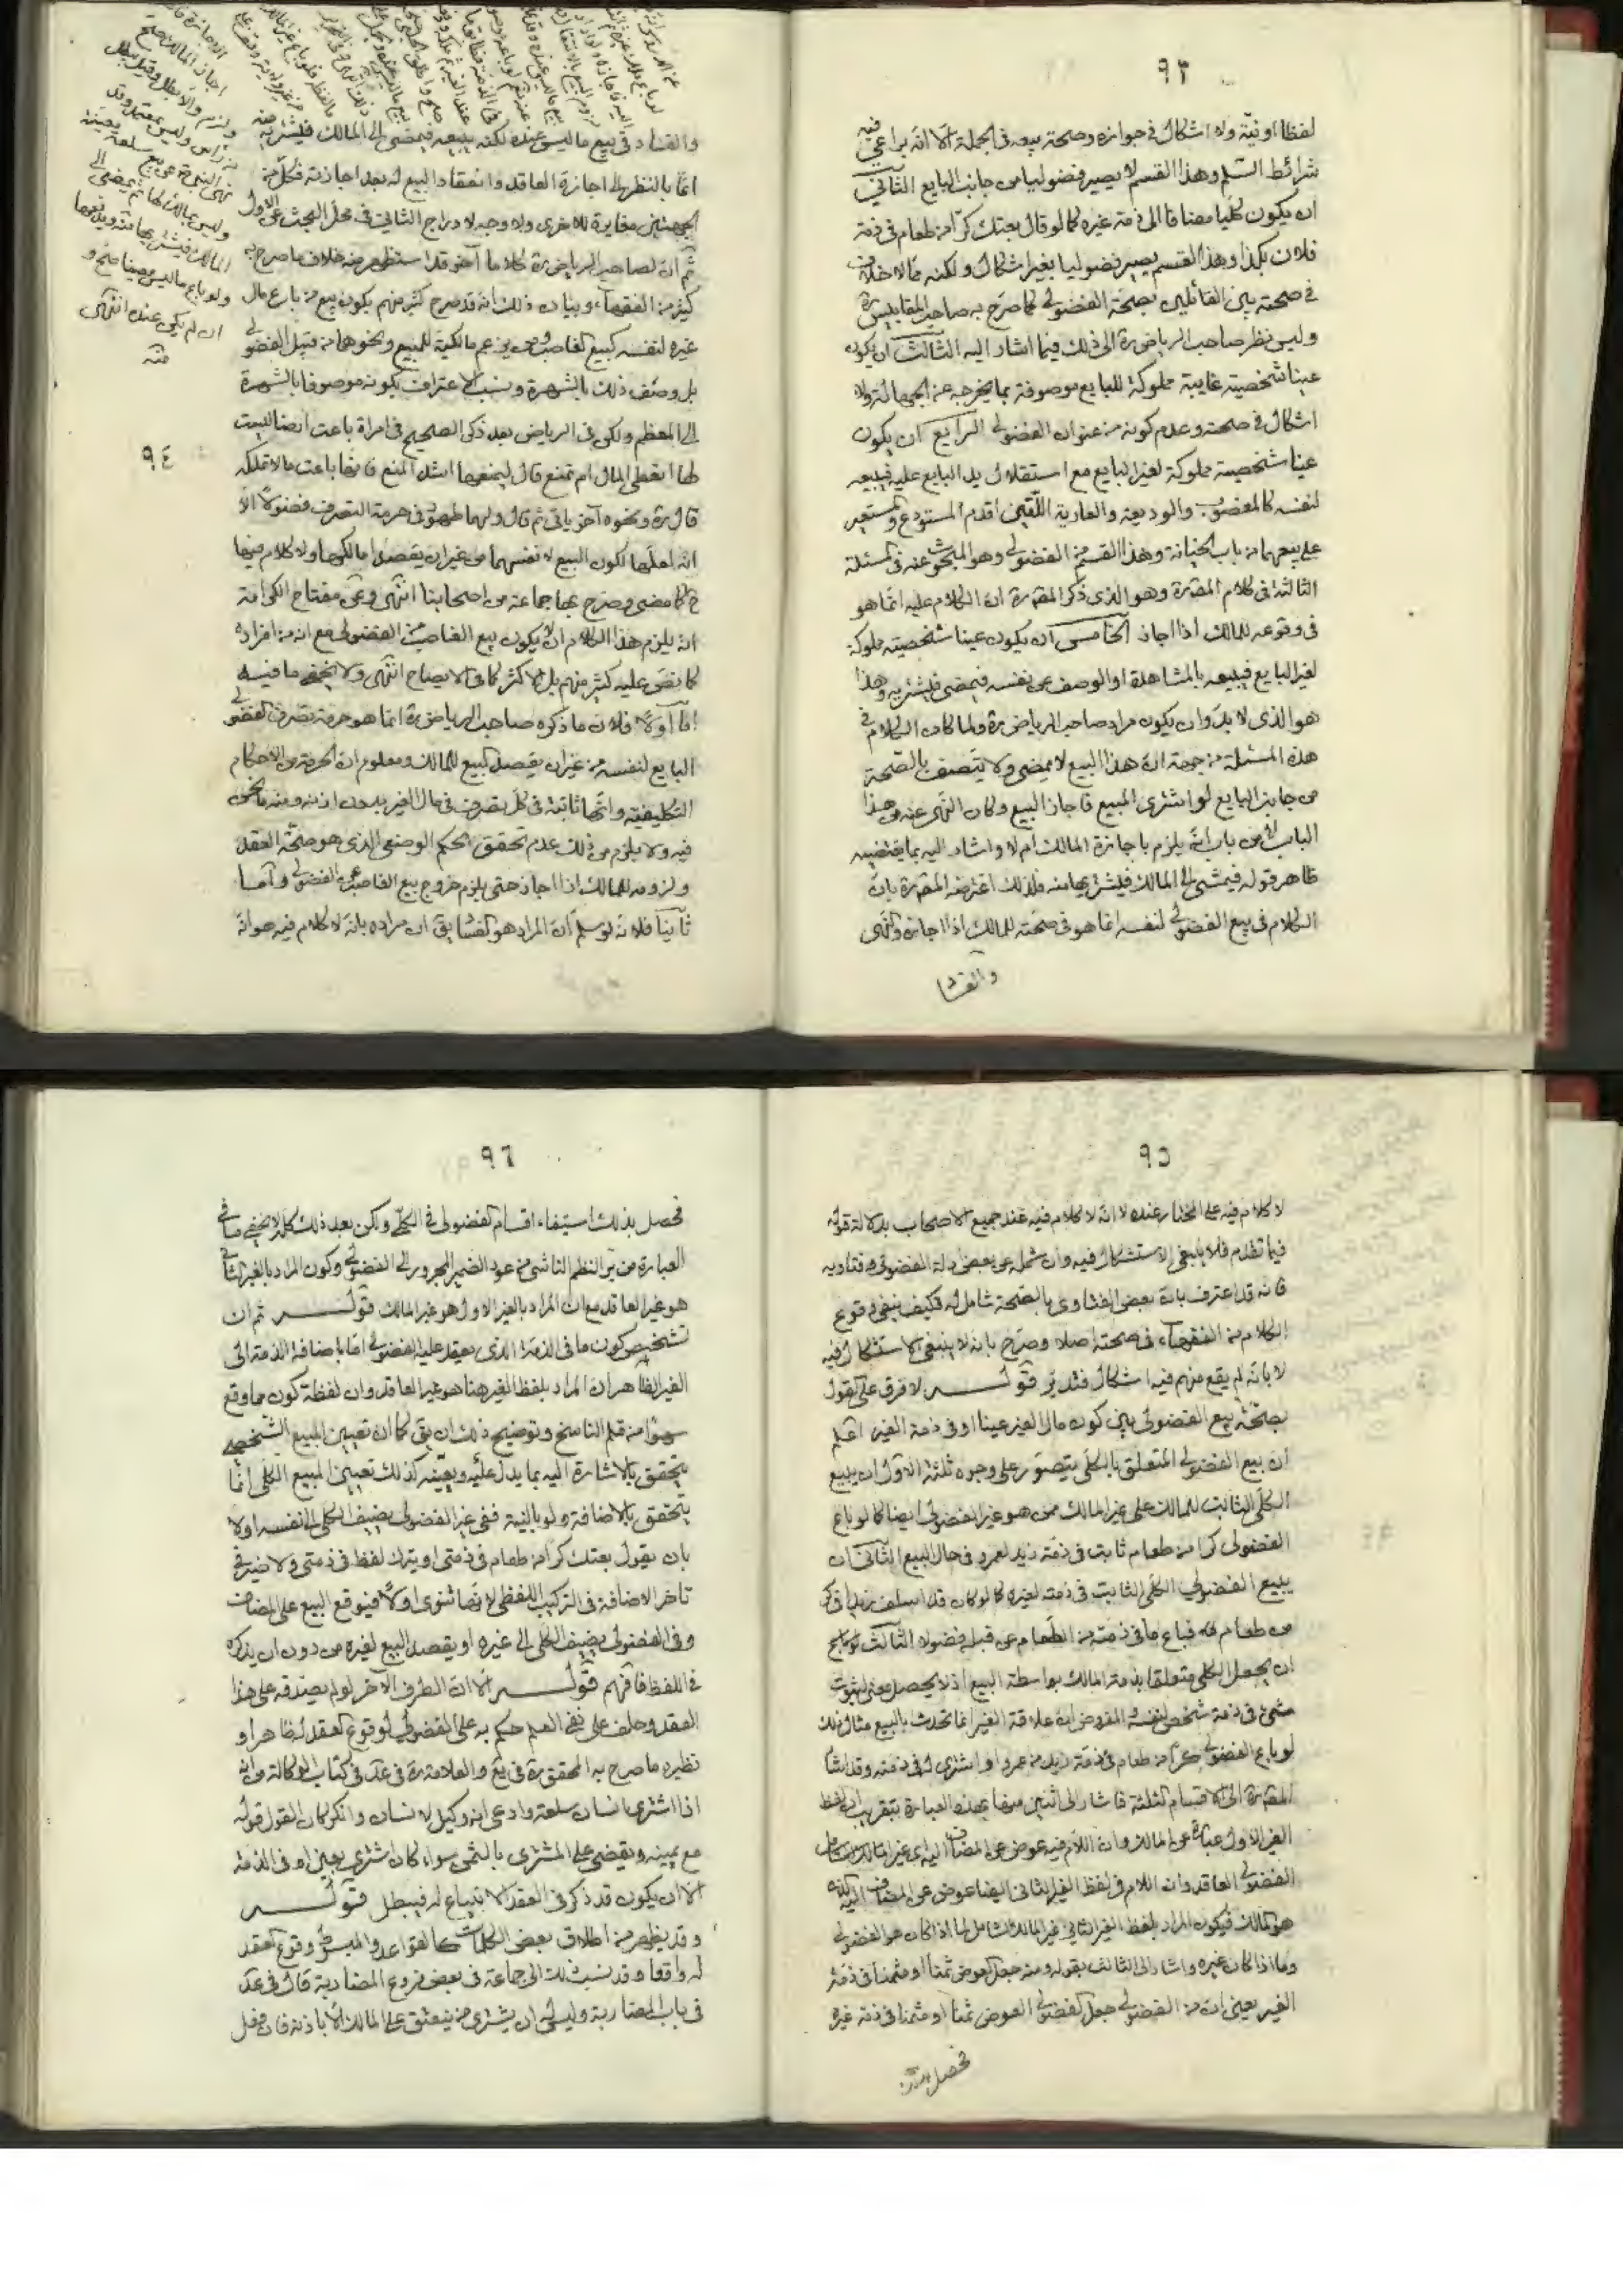 ٩٣
لفظا او نيّة ولا اشكال في جوازه وصحة بيعه في الجملة الّا انّه يراعى فيه
شرائط السّلم وهذا القسم لا يصير فضوليا من جانب البايع الثاني
ان يكون كلّيا مضافا الى ذمة غيره كما لو قال بعتك كرّا من طعام في ذمة
فلان بكذا وهذا القسم يصير فضوليا بغير اشكال ولكنه ممّا لا خلاف
في صحته بين القائلين بصحّة الفضولي كما صرّح به صاحب المقابيس ره
وليس نظر صاحب الرياض ره الى ذلك فيما اشار اليه الثالث ان يكون
عينا شخصية غايبة مملوكة للبايع موصوفة بما يخرجه عن الجهالة ولا
اشكال في صحته وعدم كونه من عنوان الفضولي الرابع ان يكون
عينا شخصية مملوكة لغير البايع مع استقلال يد البايع عليه فيبيعه
لنفسه كالمغصوب والوديعة والعارية اللّتين اقدم المستودع والمستعير
على بيعهما من باب الخيانة وهذا القسم من الفضولي وهو المبحوث عنه في المسئلة
الثالثة في كلام المص ره وهو الذى ذكر المص ره ان الكلام عليه انما هو
في وقوعه للمالك اذا اجاز الخامس ان يكون عينا شخصية مملوكة
لغير البايع فيبيعه بالمشاهدة او الوصف عن نفسه فيمضى فيشتريه وهذا
هو الذى لا بدّ وان يكون مراد صاحب الرياض ره ولما كان الكلام في
هذه المسئلة من جهة انّ هذا البيع لا يمضى ولا يتّصف بالصّحة
من جانب البايع لو اشترى المبيع فاجاز البيع وكان النهى عنه من هذا
الباب لا من باب انّه يلزم باجازة المالك ام لا واشار اليه بما يقتضيه
ظاهر قوله فيمشى الى المالك فيشتريها منه فلذلك اعترضه المص ره بانّ
الكلام في بيع الفضولي لنفسه انما هو في صحّته للمالك اذا اجاز والنهى
والفساد
والفساد في بيع ما ليس عنده لكنه يبيعه فيمضى الى المالك فيشتريه منه
انما بالنظر الى اجازة العاقد وانعقاد البيع له بعد اجازته فكلّ من
الجهتين مغايرة للاخرى ولا وجه لادراج الثانى في محل البحث عن الاول
ثم ان لصاحب الرياض ره كلاما آخر قد استظهر منه خلاف ما صرح به
كثير من الفقهاء وبيان ذلك انه قد صرح كثير منهم بكون بيع من باع مال
غيره لنفسه كبيع الغاصب ومن يزعم مالكية للمبيع ونحوهما من قبيل الفضولي
بل وصف ذلك بالشهرة ونسب الاعتراف بكونه موصوفا بالشهرة
الى المعظم ولكن في الرياض بعد ذكر الصحيح في امراة باعت ارضا ليست
لها ايعطى المال ام تمنع قال ليمنعها اشد المنع فانها باعت ما لا تملكه
قال ره ونحوه آخر ياتى ثم قال ولهما ظهور في حرمة التصرف فضولا الّا
انه لعلّها لكون البيع لانفسهما من غير ان يقصدا مالكها ولا كلام فيها
ح كما مضى وصرح بها جماعة من اصحابنا انتهى وعن مفتاح الكرامة
انه يلزم هذا الكلام ان لا يكون بيع الغاصب من الفضولي مع انه من افراده
كما نصّ عليه كثير منهم بل الاكثر كما في الايضاح انتهى ولا يخفى ما فيه
امّا اوّلا فلان ما ذكره صاحب الرياض ره انما هو حرمة تصرف الفضولي
البايع لنفسه من غير ان يقصد البيع للمالك ومعلوم ان الحرمة من الاحكام
التكليفية وانّها ثابتة في كلّ تصرف في مال الغير بدون اذنه ومنه ما نحن
فيه ولا يلزم من ذلك عدم تحقق الحكم الوضعى الذى هو صحّة العقد
ولزومه للمالك اذا اجاز حتى يلزم خروج بيع الغاصب عن الفضولي وامّا
ثانيا فلانه لو سلم انّ المراد هو الفساد ان مراده بانه لا كلام فيه هو انه
اجاز المالك صح
ولزم والّا بطل وقيل يبطل
من راس وليس بمعتمد وقد
نهى النبى ص عن بيع سلعة بعينه
وليس بمالك لها ثم يمضى الى
المالك فيشتريها منه ويدفعها
ولو باع ما ليس معينا صح و
ان لم يكن عنده انتهى
منه
٩٤
٩٥
لا كلام فيه على المختار عنده لا انه لا كلام فيه عند جميع الاصحاب بدلالة قوله
فيما تقدم فلا ينبغى الاستشكال فيه وان شمله بعض ادلة الفضولي وفتاويه
فانه قد اعترف بان بعض الفتاوى بالصّحة شامل له فكيف ينفى وقوع
الكلام من الفقهاء في صحته اصلا وصرّح بانه لا ينبغى الاستشكال فيه
لا بانه لم يقع منهم فيه اشكال فتدبّر قولــه لا فرق على القول
بصحّة بيع الفضولي بين كون مال الغير عينا او في ذمة الغير اعلم
ان بيع الفضولي المتعلق بالكلّى يتصوّر على وجوه ثلثة الاوّل ان يبيع
الكلّى الثابت للمالك على غير المالك ممن هو غير الفضولي ايضا كما لو باع
الفضولي كرا من طعام ثابت في ذمّة زيد لعمرو في حال البيع الثانى ان
يبيع الفضولي الكلّى الثابت في ذمته لغيره كما لو كان قد اسلف زيدا في كر
من طعام له فباع ما في ذمّته من الطّعام عن قبله فضولا الثالث
ان يجعل الكلى متعلقا بذمة المالك بواسطة البيع اذ لا يحصل معنى لثبوت
شىء في ذمة شخص لنفسه المفروض ان علاقة الغير انما تحدث بالبيع مثال ذلك
لو باع الفضولي كرّا من طعام في ذمّة زيد من عمرو او اشترى له في ذمته وقد اشار
المص ره الى الاقسام الثلثة فاشار الى اثنين منها بهذه العبارة بتقريب ان لفظ
الغير الاول عبارة عن المالك وان اللّام فيه عوض عن المضاف اليه اى غير المالك الشامل
الفضولي العاقد وان اللام في لفظ الغير الثانى ايضا عوض عن المضاف اليه لكنه
هو المالك فيكون المراد بلفظ الغير الثانى غير المالك الشامل لما اذا كان هو الفضولي
وما اذا كان غيره واشار الى الثالث بقوله ومنه جعل العوض ثمنا او مثمنا في ذمّة
الغير يعنى ان من الفضولي جعل الفضولي العوض ثمنا او مثمنا في ذمة غيره
فحصل بذلك
٩٦
فحصل بذلك استيفاء اقسام الفضولي في الكلّى ولكن بعد ذلك كلّه لا يخفى ما في
العبارة من النظم الناشى من عود الضمير المجرور الى الفضولي وكون المراد بالغير الثانى
هو غير العاقد مع ان المراد بالغير الاول هو غير المالك قولــه ثم ان
تشخيص كون ما في الذمة الذى يعقد عليه الفضولي امّا باضافة الذمة الى
الغير الظاهر ان المراد بلفظ الغير هنا هو غير العاقد وان لفظة كون مما وقع
سهوا من قلم الناسخ وتوضيح ذلك ان يق كما ان تعيين المبيع الشّخصى
يتحقق بالاشارة اليه بما يدل عليه ويعيّنه كذلك تعيين المبيع الكلّى انّما
يتحقق بالاضافة ولو بالنية ففى غير الفضولي يضيف الكلى الى نفسه اولا
بان يقول بعتك كرا من طعام في ذمتى او يترك لفظ في ذمتى ولا ضير في
تاخر الاضافة في التركيب اللفظى لانها تنوى اولا فيوقع البيع على المضاف
وفى الفضولي يضيف الكلى الى غيره او يقصد البيع لغيره من دون ان يذكره
في اللفظ فافهم قولــه الا ان الطرف الآخر لو لم يصدقه على هذا
العقد وحلف على نفى العلم حكم به على الفضولي لوقوع العقد له ظاهرا و
نظيره ما صرح به المحقق ره في يع والعلامة ره في عد في كتاب الوكالة من انه
اذا اشترى انسان سلعة وادعى انه وكيل لانسان وانكر كان القول قوله
مع يمينه ويقضى على المشترى بالثمن سواء كان اشترى بعين او في الذمة
الا ان يكون قد ذكر في العقد الابتياع له فيبطل قولــه
وقد يظهر من اطلاق بعض الكلمات كالقواعد والمبسوط وقوع العقد
له واقعا وقد نسب ذلك الى جماعة في بعض فروع المضاربة قال في عد
في باب المضاربة وليس له ان يشترى من ينعتق على المالك الّا باذنه فان فعل